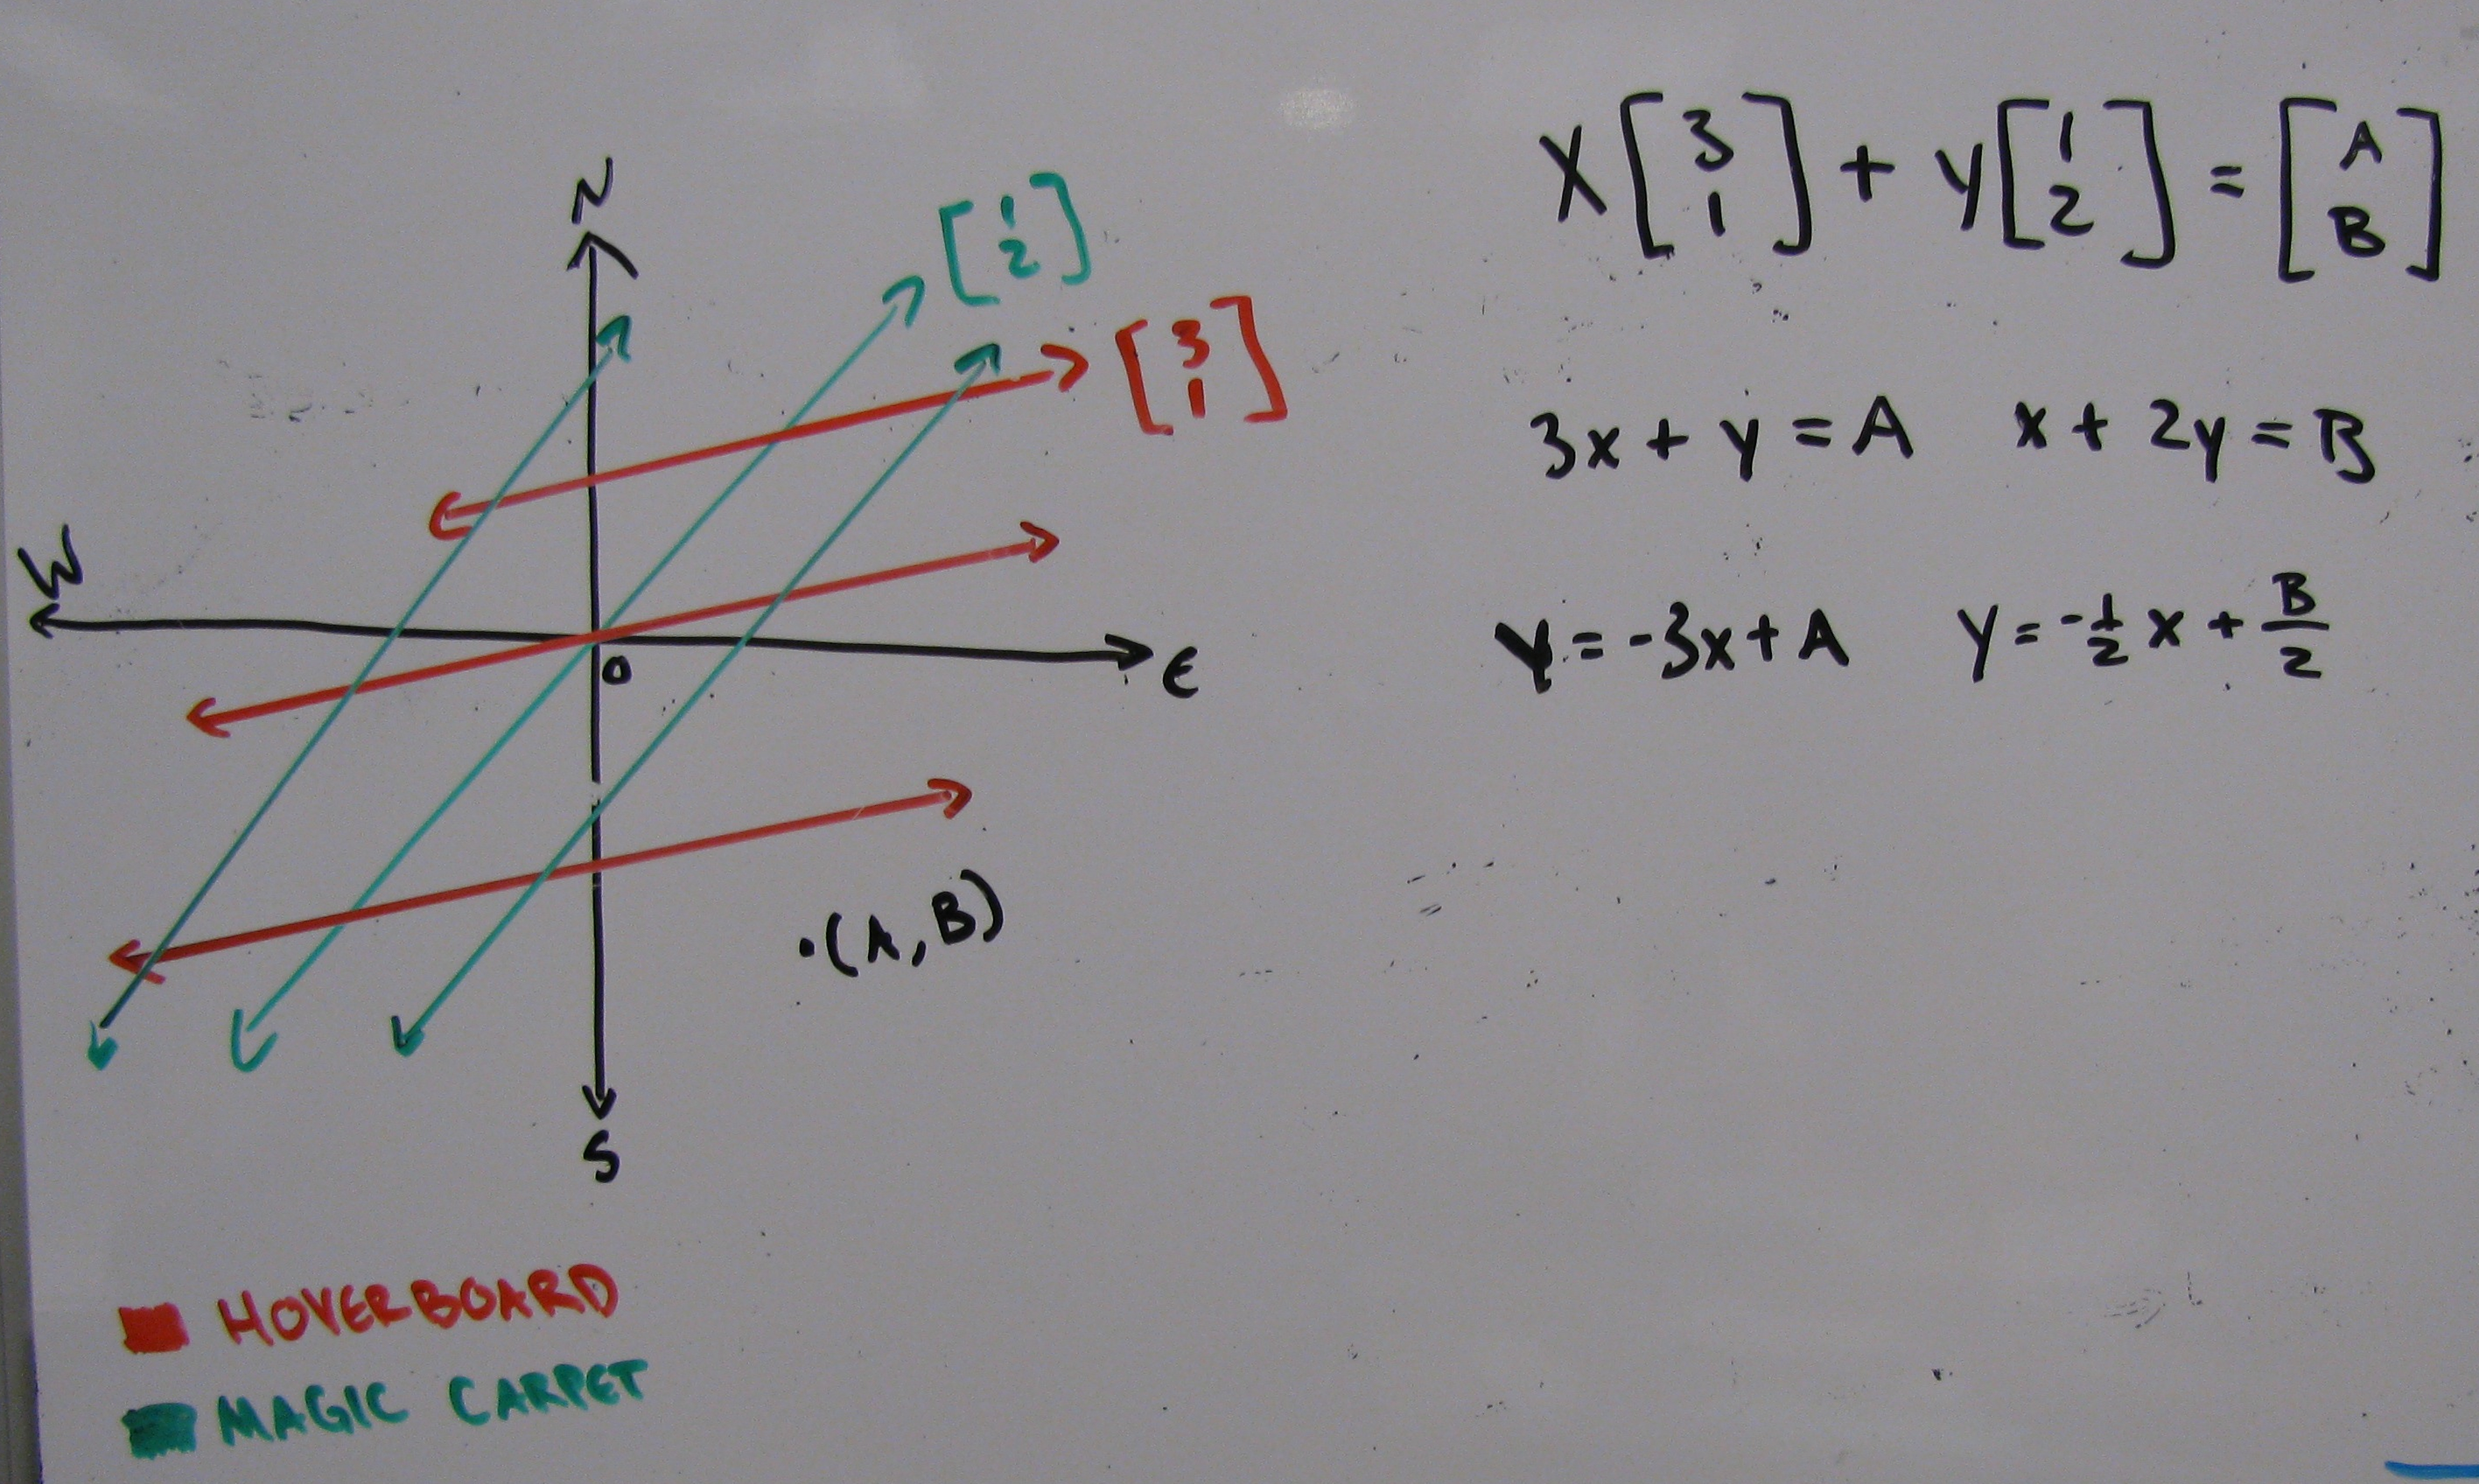 N
[1 2]
[3 1]
W
O
E
.(A, B)
S
HOVERBOARD
MAGIC CARPET
X[3 1] + y[1 2] = [A B]
3x + y = A x + 2y = B
y = -3x + A y = -1/2 x + B/2